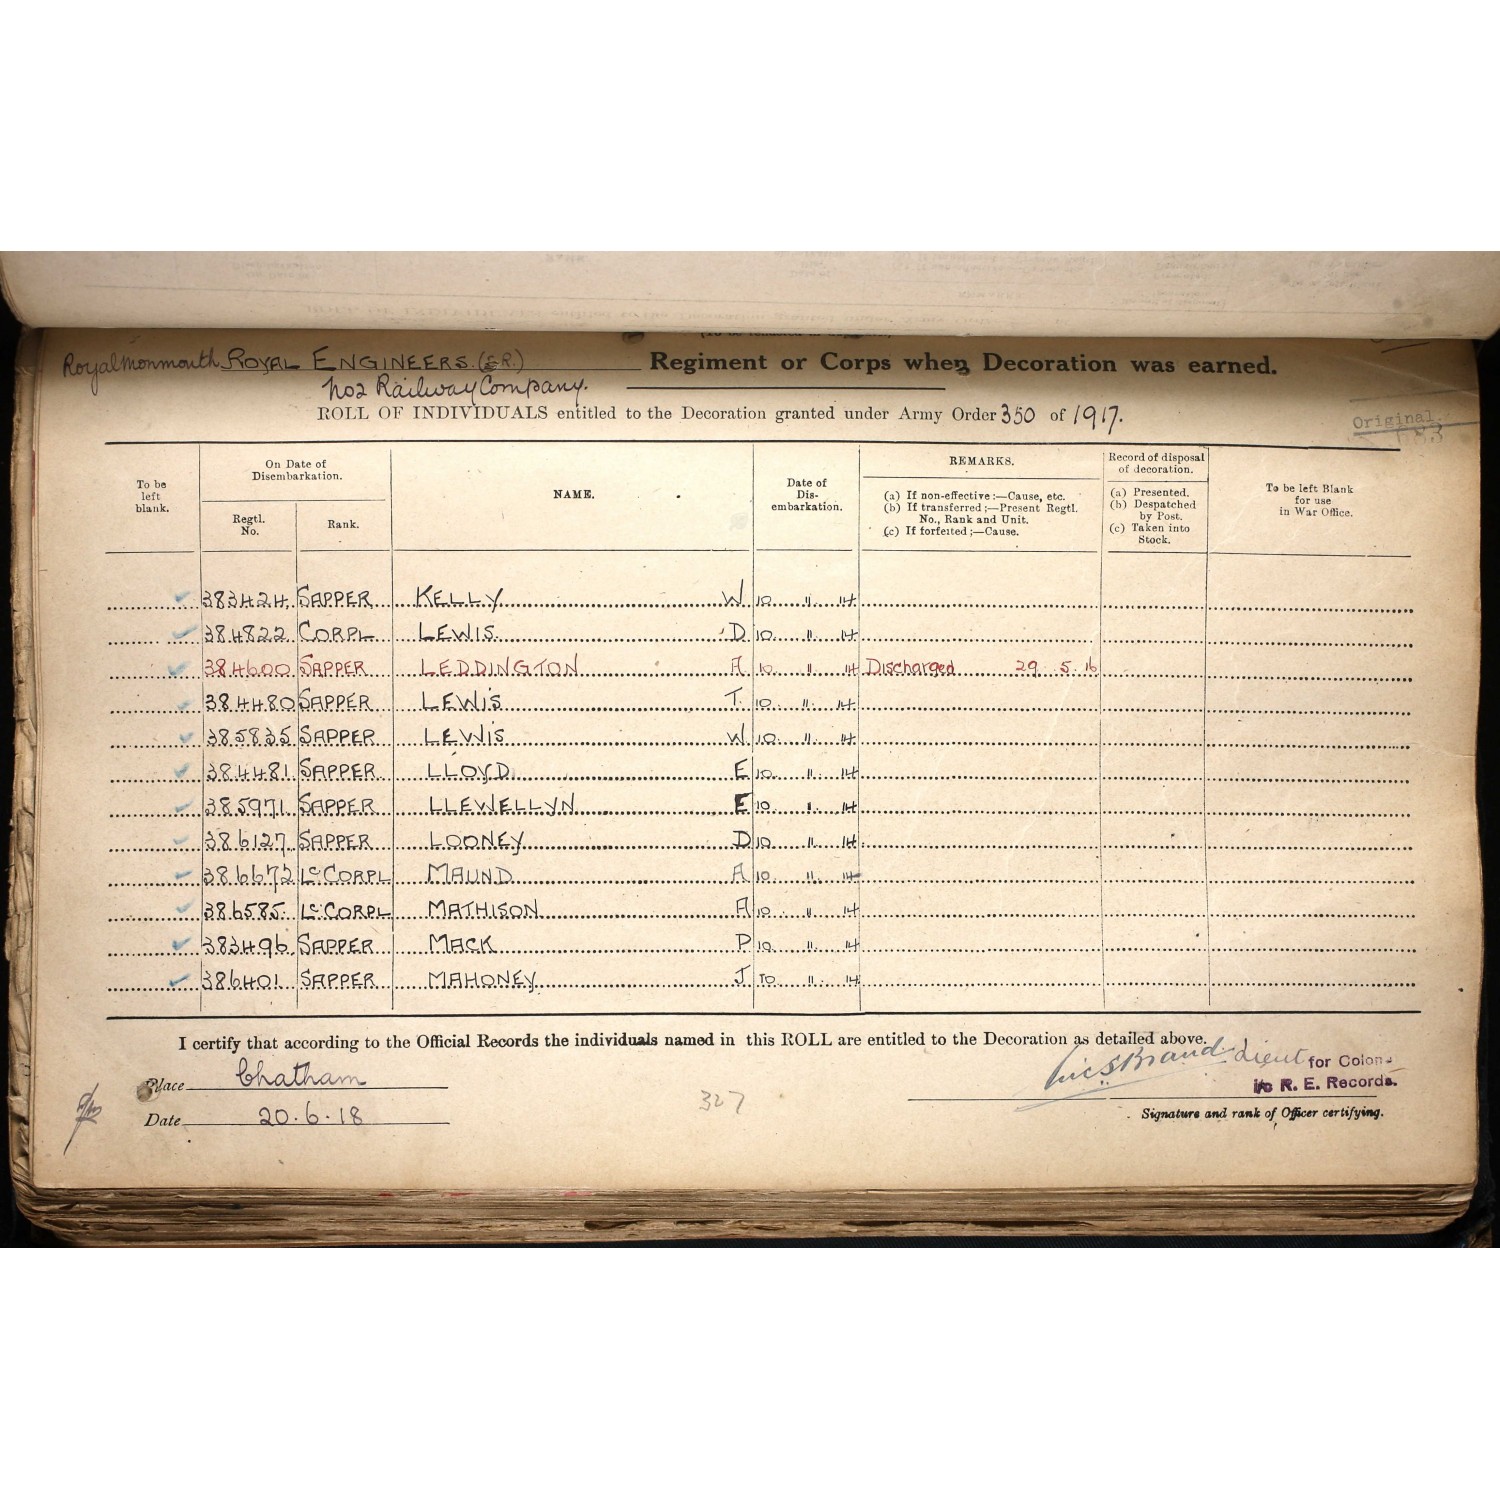 Royal Monmouth ROYAL ENGINEERS. (S.R.) Regiment or Corps when Decoration was earned.
No 2 Railway Company.
ROLL OF INDIVIDUALS entitled to the Decoration granted under Army Order 350 of 1917.
Original
To be left blank.
On Date of Disembarkation.
Regtl. No.
Rank.
NAME.
Date of Dis-embarkation.
REMARKS.
(a) If non-effective:—Cause, etc.
(b) If transferred;—Present Regtl. No., Rank and Unit.
(c) If forfeited;—Cause.
Record of disposal of decoration.
(a) Presented.
(b) Despatched by Post.
(c) Taken into Stock.
To be left Blank for use in War Office.
383424 SAPPER KELLY W 10 11 14
384822 CORPL LEWIS D 10 11 14
384600 SAPPER LEDDINGTON A 10 11 14 Discharged 29 5 16
384480 SAPPER LEWIS T. 10 11 14
385835 SAPPER LEWIS W 10 11 14
384481 SAPPER LLOYD E 10 11 14
385971 SAPPER LLEWELLYN E 10 11 14
386127 SAPPER LOONEY D 10 11 14
386672 Lc CORPL MAUND A 10 11 14
386585 Lc CORPL MATHISON A 10 11 14
383496 SAPPER MACK P 10 11 14
386401 SAPPER MAHONEY J 10 11 14
I certify that according to the Official Records the individuals named in this ROLL are entitled to the Decoration as detailed above.
Place Chatham
Date 20.6.18
327
Brand Lieut for Colonel
i/c R. E. Records.
Signature and rank of Officer certifying.